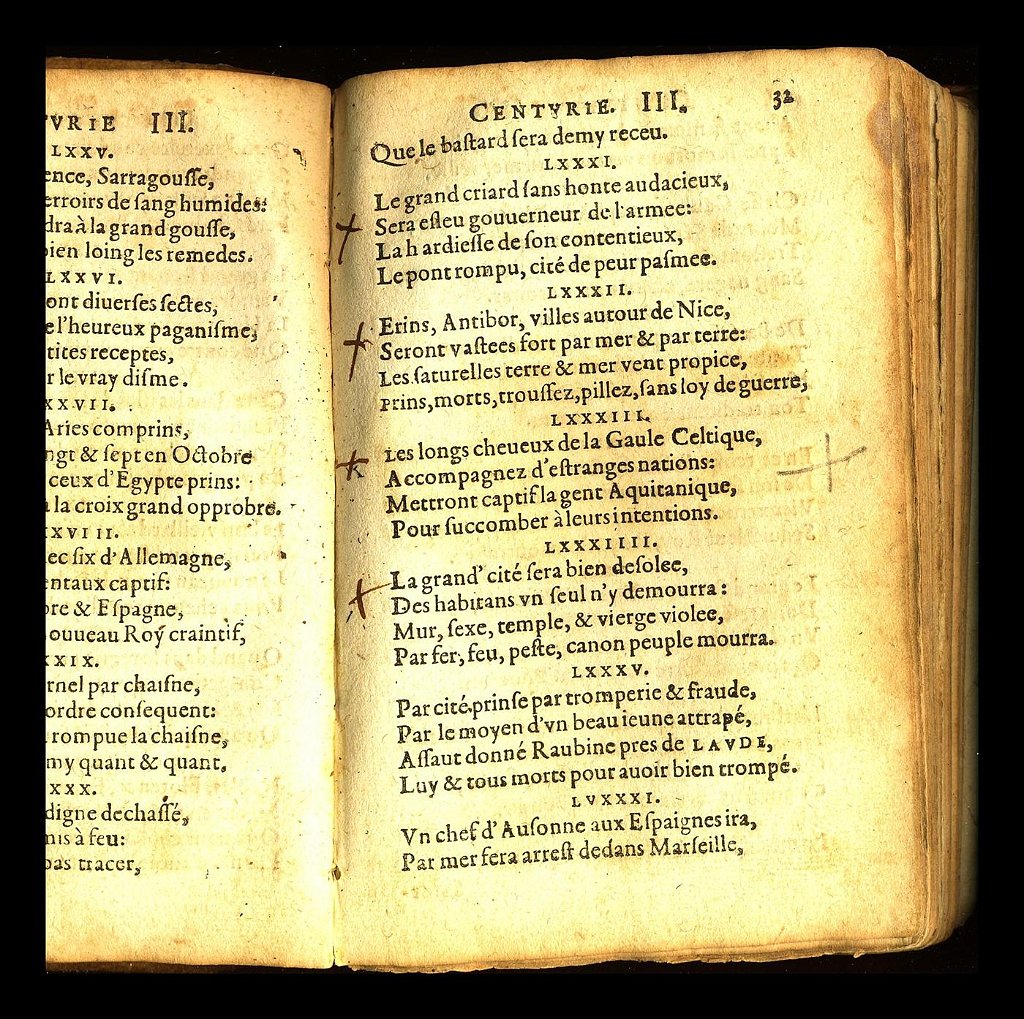 VRIE III.
LXXV.
ence, Sarragousse,
erroirs de sang humides:
dra à la grand gousse,
bien loing les remedes.
LXXVI.
ont diuerses sectes,
e l'heureux paganisme,
tites receptes,
r le vray disme.
XXVII.
Aries comprins,
ngt & sept en Octobre
ceux d'Egypte prins:
la croix grand opprobre.
XXVIII.
ec six d'Allemagne,
entaux captif:
bre & Espagne,
ouueau Roy craintif,
XXIX.
rnel par chaisne,
ordre consequent:
rompue la chaisne,
my quant & quant.
XXX.
digne dechassé,
mis à feu:
pas tracer,
CENTVRIE. III. 32
Que le bastard sera demy receu.
LXXXI.
Le grand criard sans honte audacieux,
Sera esleu gouuerneur de l'armee:
La h ardiesse de son contentieux,
Le pont rompu, cité de peur pasmee.
LXXXII.
Erins, Antibor, villes autour de Nice,
Seront vastees fort par mer & par terre:
Les saturelles terre & mer vent propice,
Prins, morts, troussez, pillez, sans loy de guerre,
LXXXIII.
Les longs cheueux de la Gaule Celtique,
Accompagnez d'estranges nations:
Mettront captif la gent Aquitanique,
Pour succomber à leurs intentions.
LXXXIIII.
La grand' cité sera bien desolee,
Des habitans vn seul n'y demourra:
Mur, sexe, temple, & vierge violee,
Par fer, feu, peste, canon peuple mourra.
LXXXV.
Par cité prinse par tromperie & fraude,
Par le moyen d'vn beau ieune attrapé,
Assaut donné Raubine pres de LAVDE,
Luy & tous morts pour auoir bien trompé.
LVXXXI.
Vn chef d'Ausonne aux Espaignes ira,
Par mer fera arrest dedans Marseille,